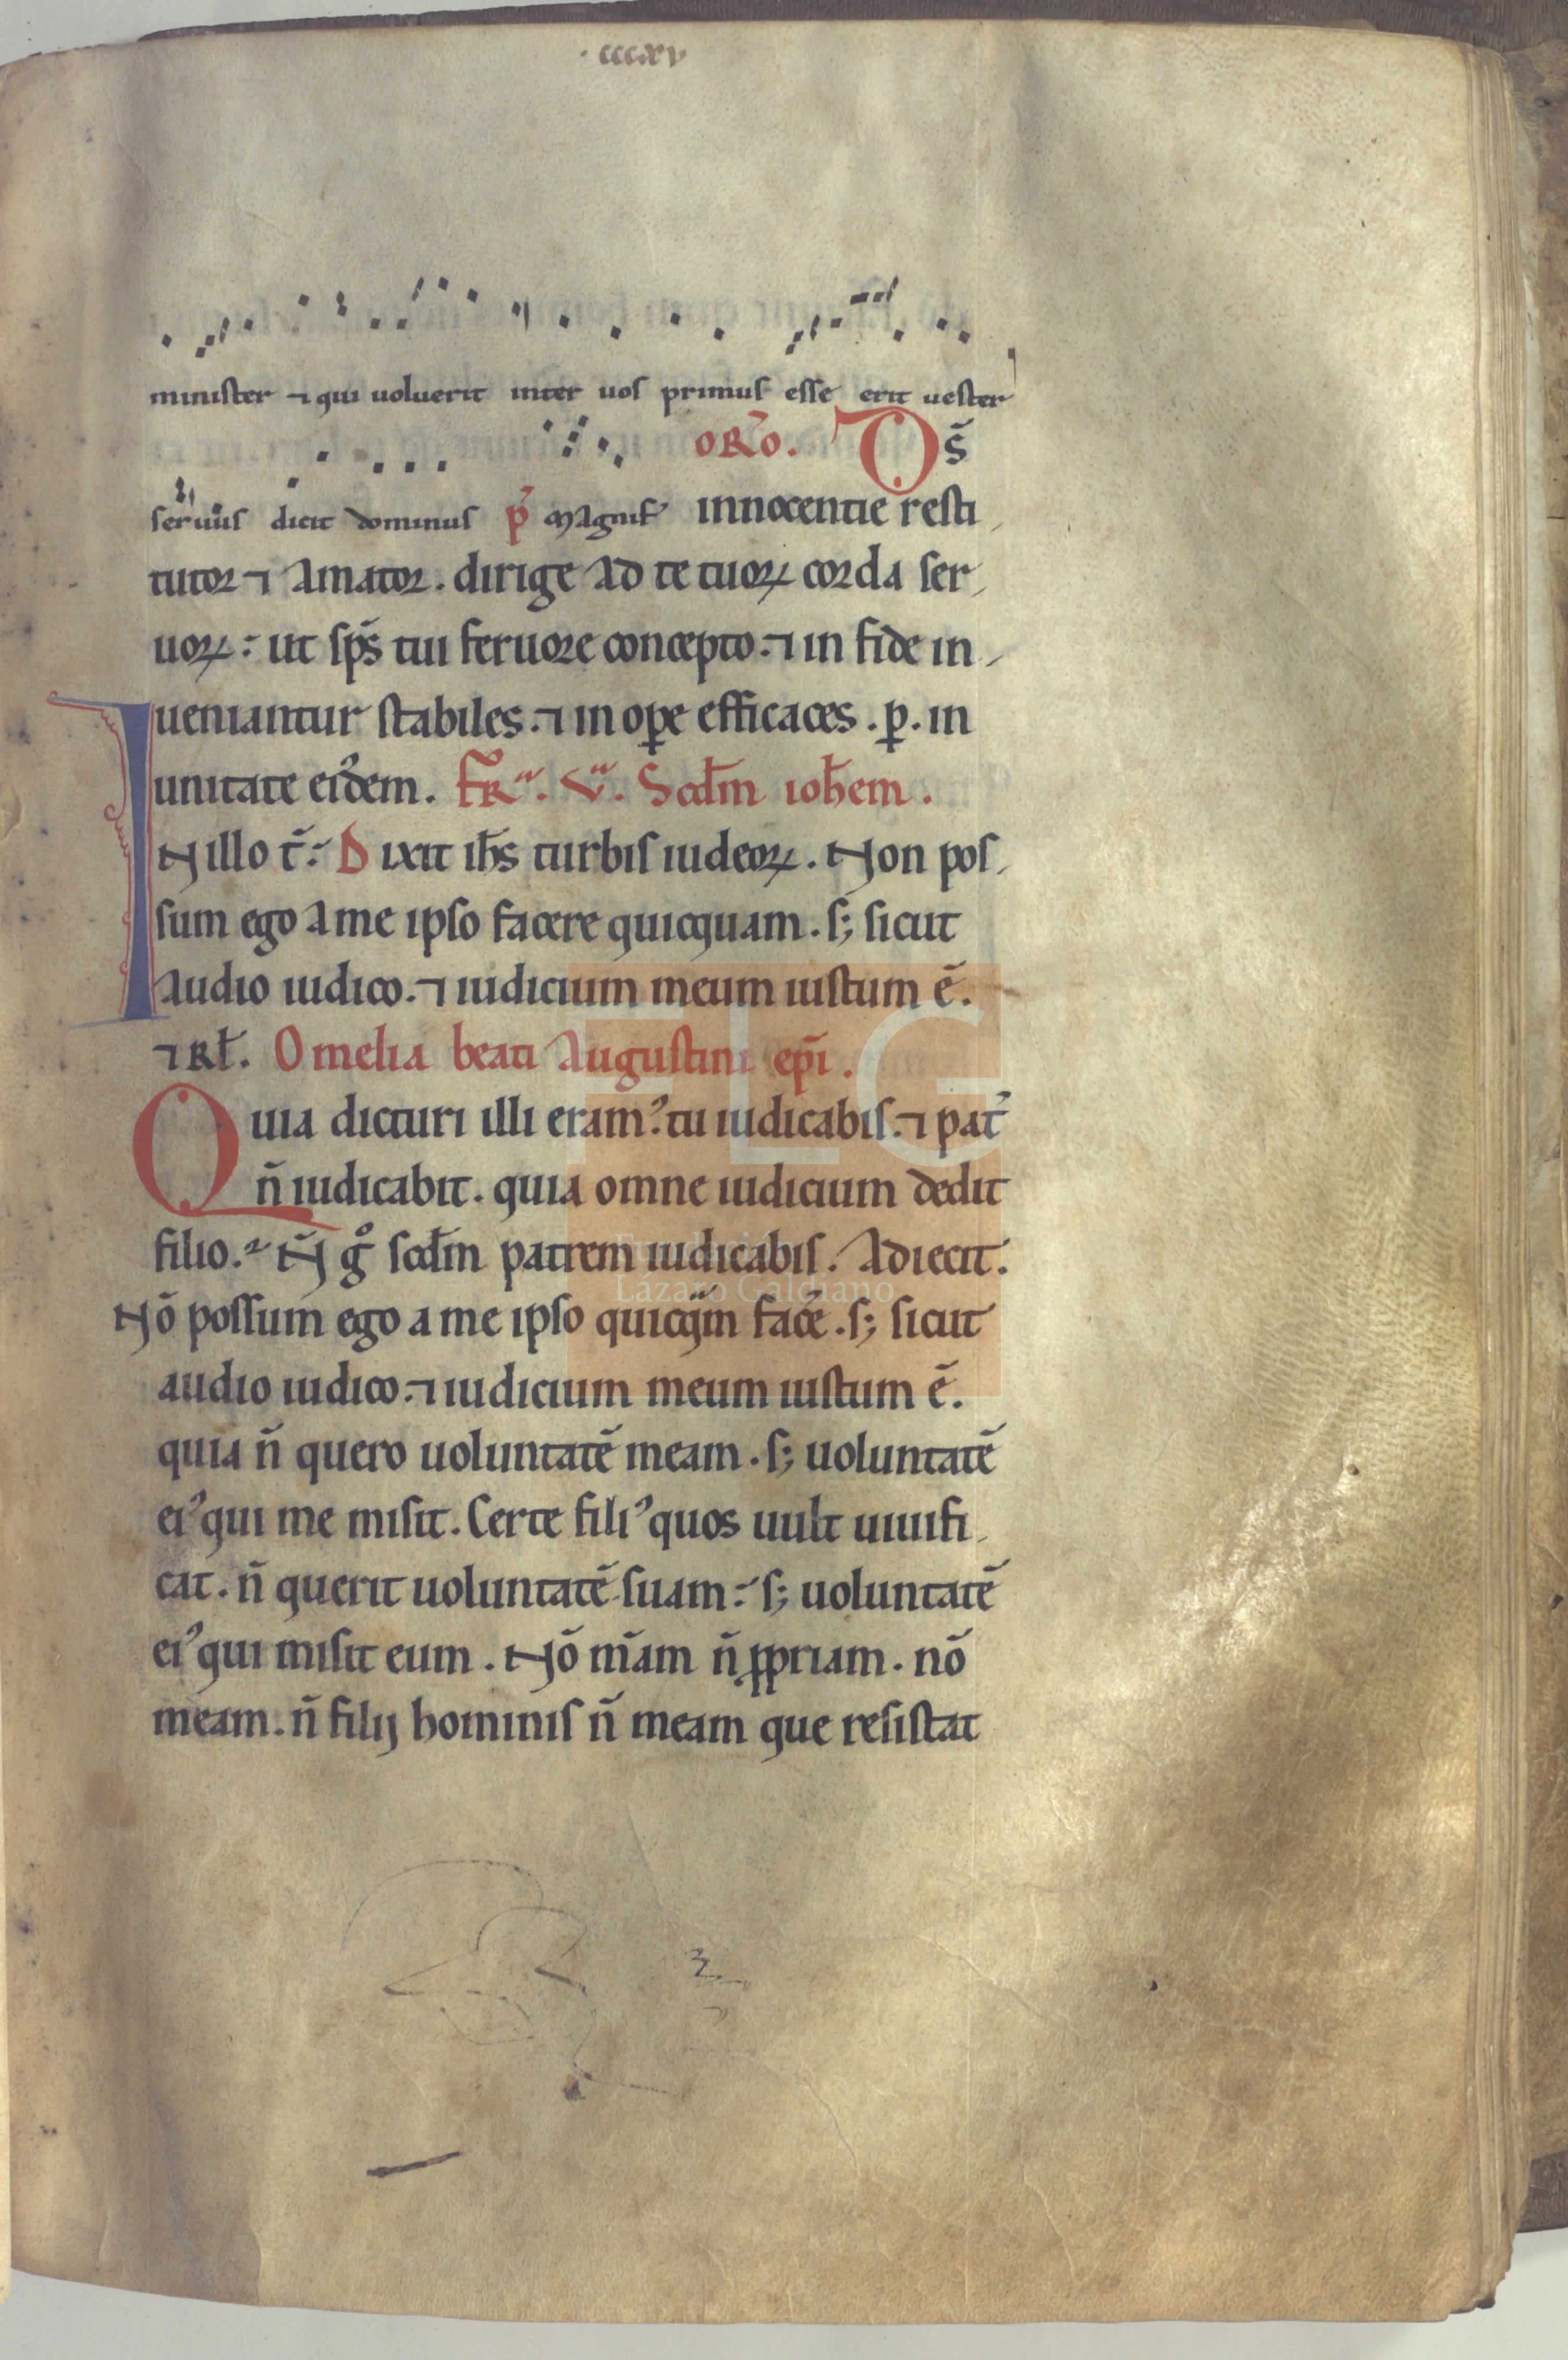 ·cccxv
minister ⁊ qui uoluerit inter uos primus esse erit uester
oR̄o. Ds̄
seruus dicit dominus p̄ Magnif̄ innocentie resti
tutor ⁊ amator. dirige ad te tuoꝝ corda ser
uoꝝ: ut sp̄s tui feruore concepto. ⁊ in fide in
ueniantur stabiles. ⁊ in oꝑe efficaces. p. in
unitate eiꝰdem. FRᵃ. vᵃ. Scd̄m ioh̄em.
IN illo t̄: Dixit ih̄s turbis iudeoꝝ. Non pos
sum ego a me ipso facere quicquam. s; sicut
audio iudico. ⁊ iudicium meum iustum ē.
⁊ Rł. Omelia beati Augustini ep̄i.
Quia dicturi illi eram? tu iudicabis. ⁊ pat̄
n̄ iudicabit. quia omne iudicium dedit
filio. N̄ gͦ scd̄m patrem iudicabis. Adiecit.
Nō possum ego a me ipso quicqᵃm facē. s; sicut
audio iudico. ⁊ iudicium meum iustum ē.
quia n̄ quero uoluntatē meam. s; uoluntatē
eiꝰ qui me misit. Certe filiꝰ quos uult uiuifi
cat. n̄ querit uoluntatē suam: s; uoluntatē
eiꝰ qui misit eum. Nō m̄am n̄ ꝓpriam. nō
meam. n̄ filij hominis n̄ meam que resistat
FLG
Lázaro Galdiano